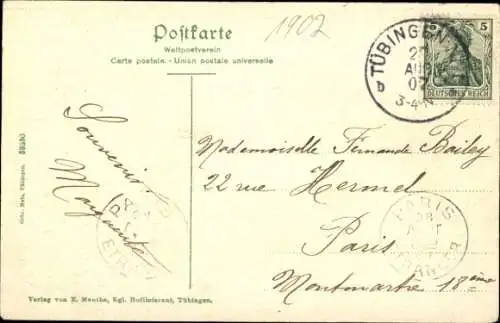 1902
Postkarte
Weltpostverein
Carte postale. - Union postale universelle
TÜBINGEN
27
AUG
07
3-4 N
b
5
DEUTSCHES REICH
Souvenir!
Marguerite
Mademoiselle Fernande Bailey
22 rue Hermel
Paris
Montmartre 18ème
PARIS
ETRANGER
Gebr. Metz, Tübingen.
Verlag von E. Menthe, Kgl. Hoflieferant, Tübingen.